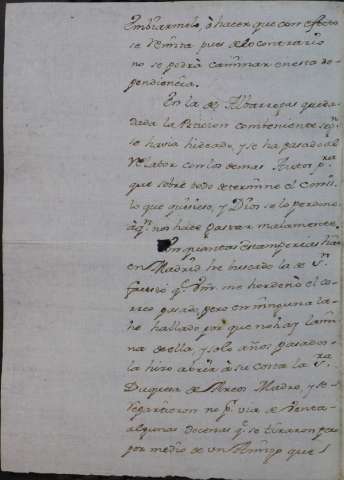 Embiarmelo, à hacer que con efecto
se remita pues de lo contrario
no se podrà caminar en esta de-
pendiencia.
En la de Albarregas queda
dada la Peticion conteniente segn.
se havia hideado, y se ha pasado al
relator con los demas Autos pra.
que sobre todo determine el Consejo
lo que quisiere, y Dios se lo perdone
à qn. nos hace gastar malamente.
en quantas estamperias hai
en Madrid he buscado la de Sn.
qe. Vm. me hordenò el co-
rreo pasado, pero en ninguna la
he hallado por que no hai lami-
na de ella, y solo años pasados
la hizo abrir à su costa la Sra.
Duquesa de Arcos Madre, y se
repartieron no pr. via de venta
algunas docenas qe. se tiraron pero
por medio de un Amigo que